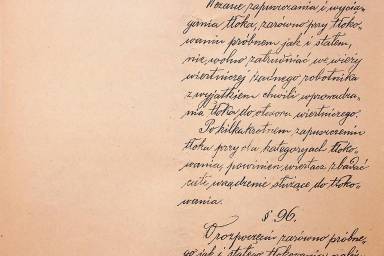 W czasie zapuszczania i wycią-
gania tłoka, zarówno przy tłoko-
waniu próbnem jak i stałem,
nie wolno zatrudniać we wieży
wiertniczej żadnego robotnika
z wyjątkiem chwili wprowadza-
nia tłoka do otworu wiertniczego.
Po kilkakrotnem zapuszczeniu
tłoku przy obu kategoryach tłoko-
wania, powinien wiertacz zbadać
całe urządzenie służące do tłoko-
wania.
§ 96.
O rozpoczęciu zarówno próbne-
go jak i stałego tłokowania